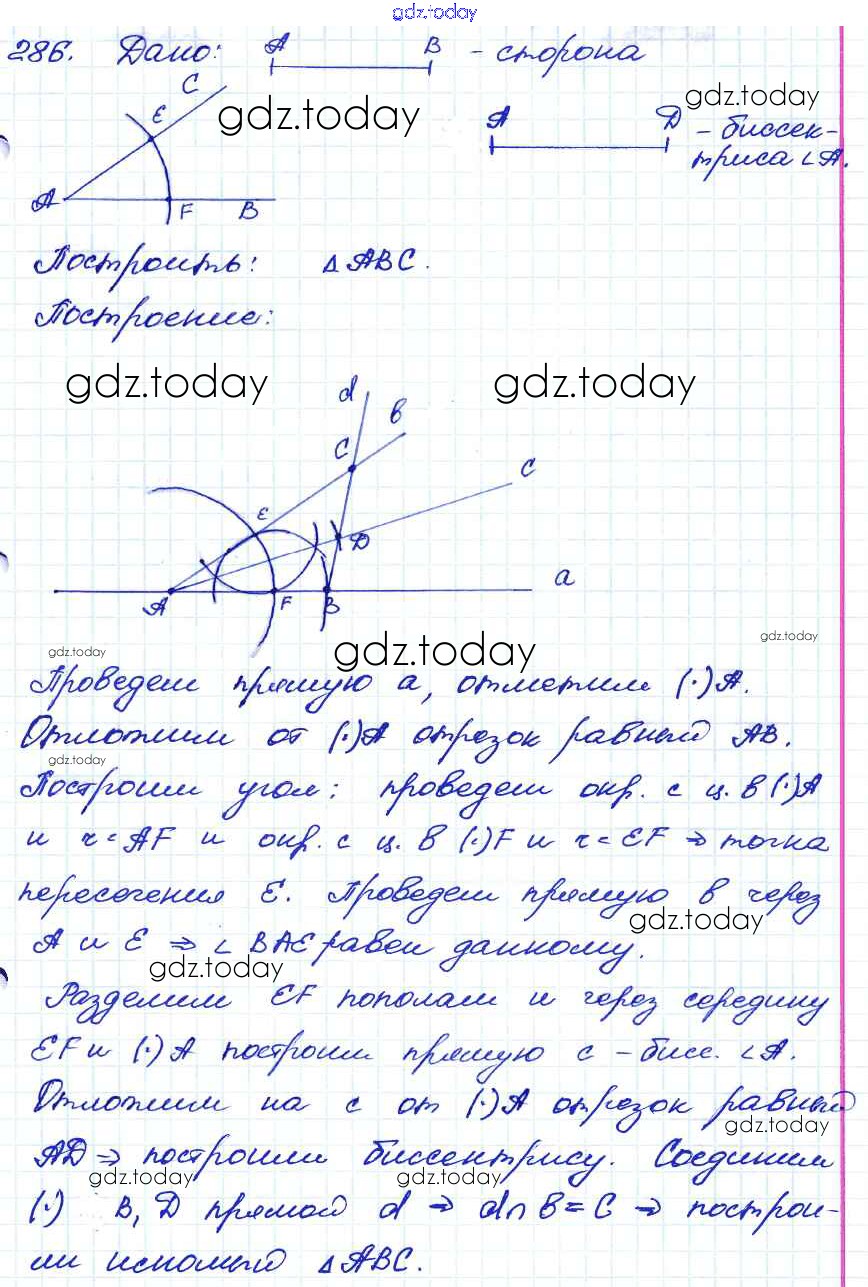 gdz.today
286. Дано: A B - сторона
C
E gdz.today gdz.today
A D - биссек-
триса ∠A.
A F B
Построить: △ABC.
Построение:
gdz.today gdz.today
d
в
C
C
E
D
A F B a
gdz.today gdz.today gdz.today
Проведем прямую a, отметим (·)A.
Отложим от (·)A отрезок равный AB.
gdz.today
Построим угол: проведем окр. с ц. в (·)A
и r=AF и окр. с ц. в (·)F и r=EF ⇒ точка
пересечения E. Проведем прямую в через
gdz.today
A и E ⇒ ∠BAE равен данному.
gdz.today
Разделим EF пополам и через середину
EF и (·)A построим прямую c - бисс. ∠A.
Отложим на c от (·)A отрезок равный
gdz.today
AD ⇒ построим биссектрису. Соединим
gdz.today gdz.today
(·) B, D прямой d ⇒ d∩в=C ⇒ построи-
ли искомый △ABC.